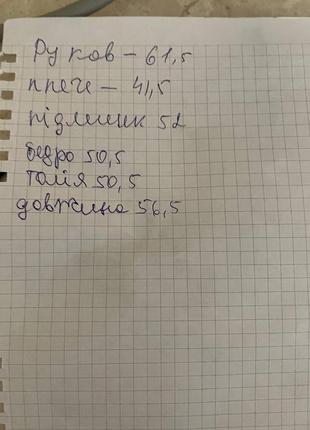 Руков - 61,5
плече - 41,5
підмишк 52
бедро 50,5
талія 50,5
довжина 56,5